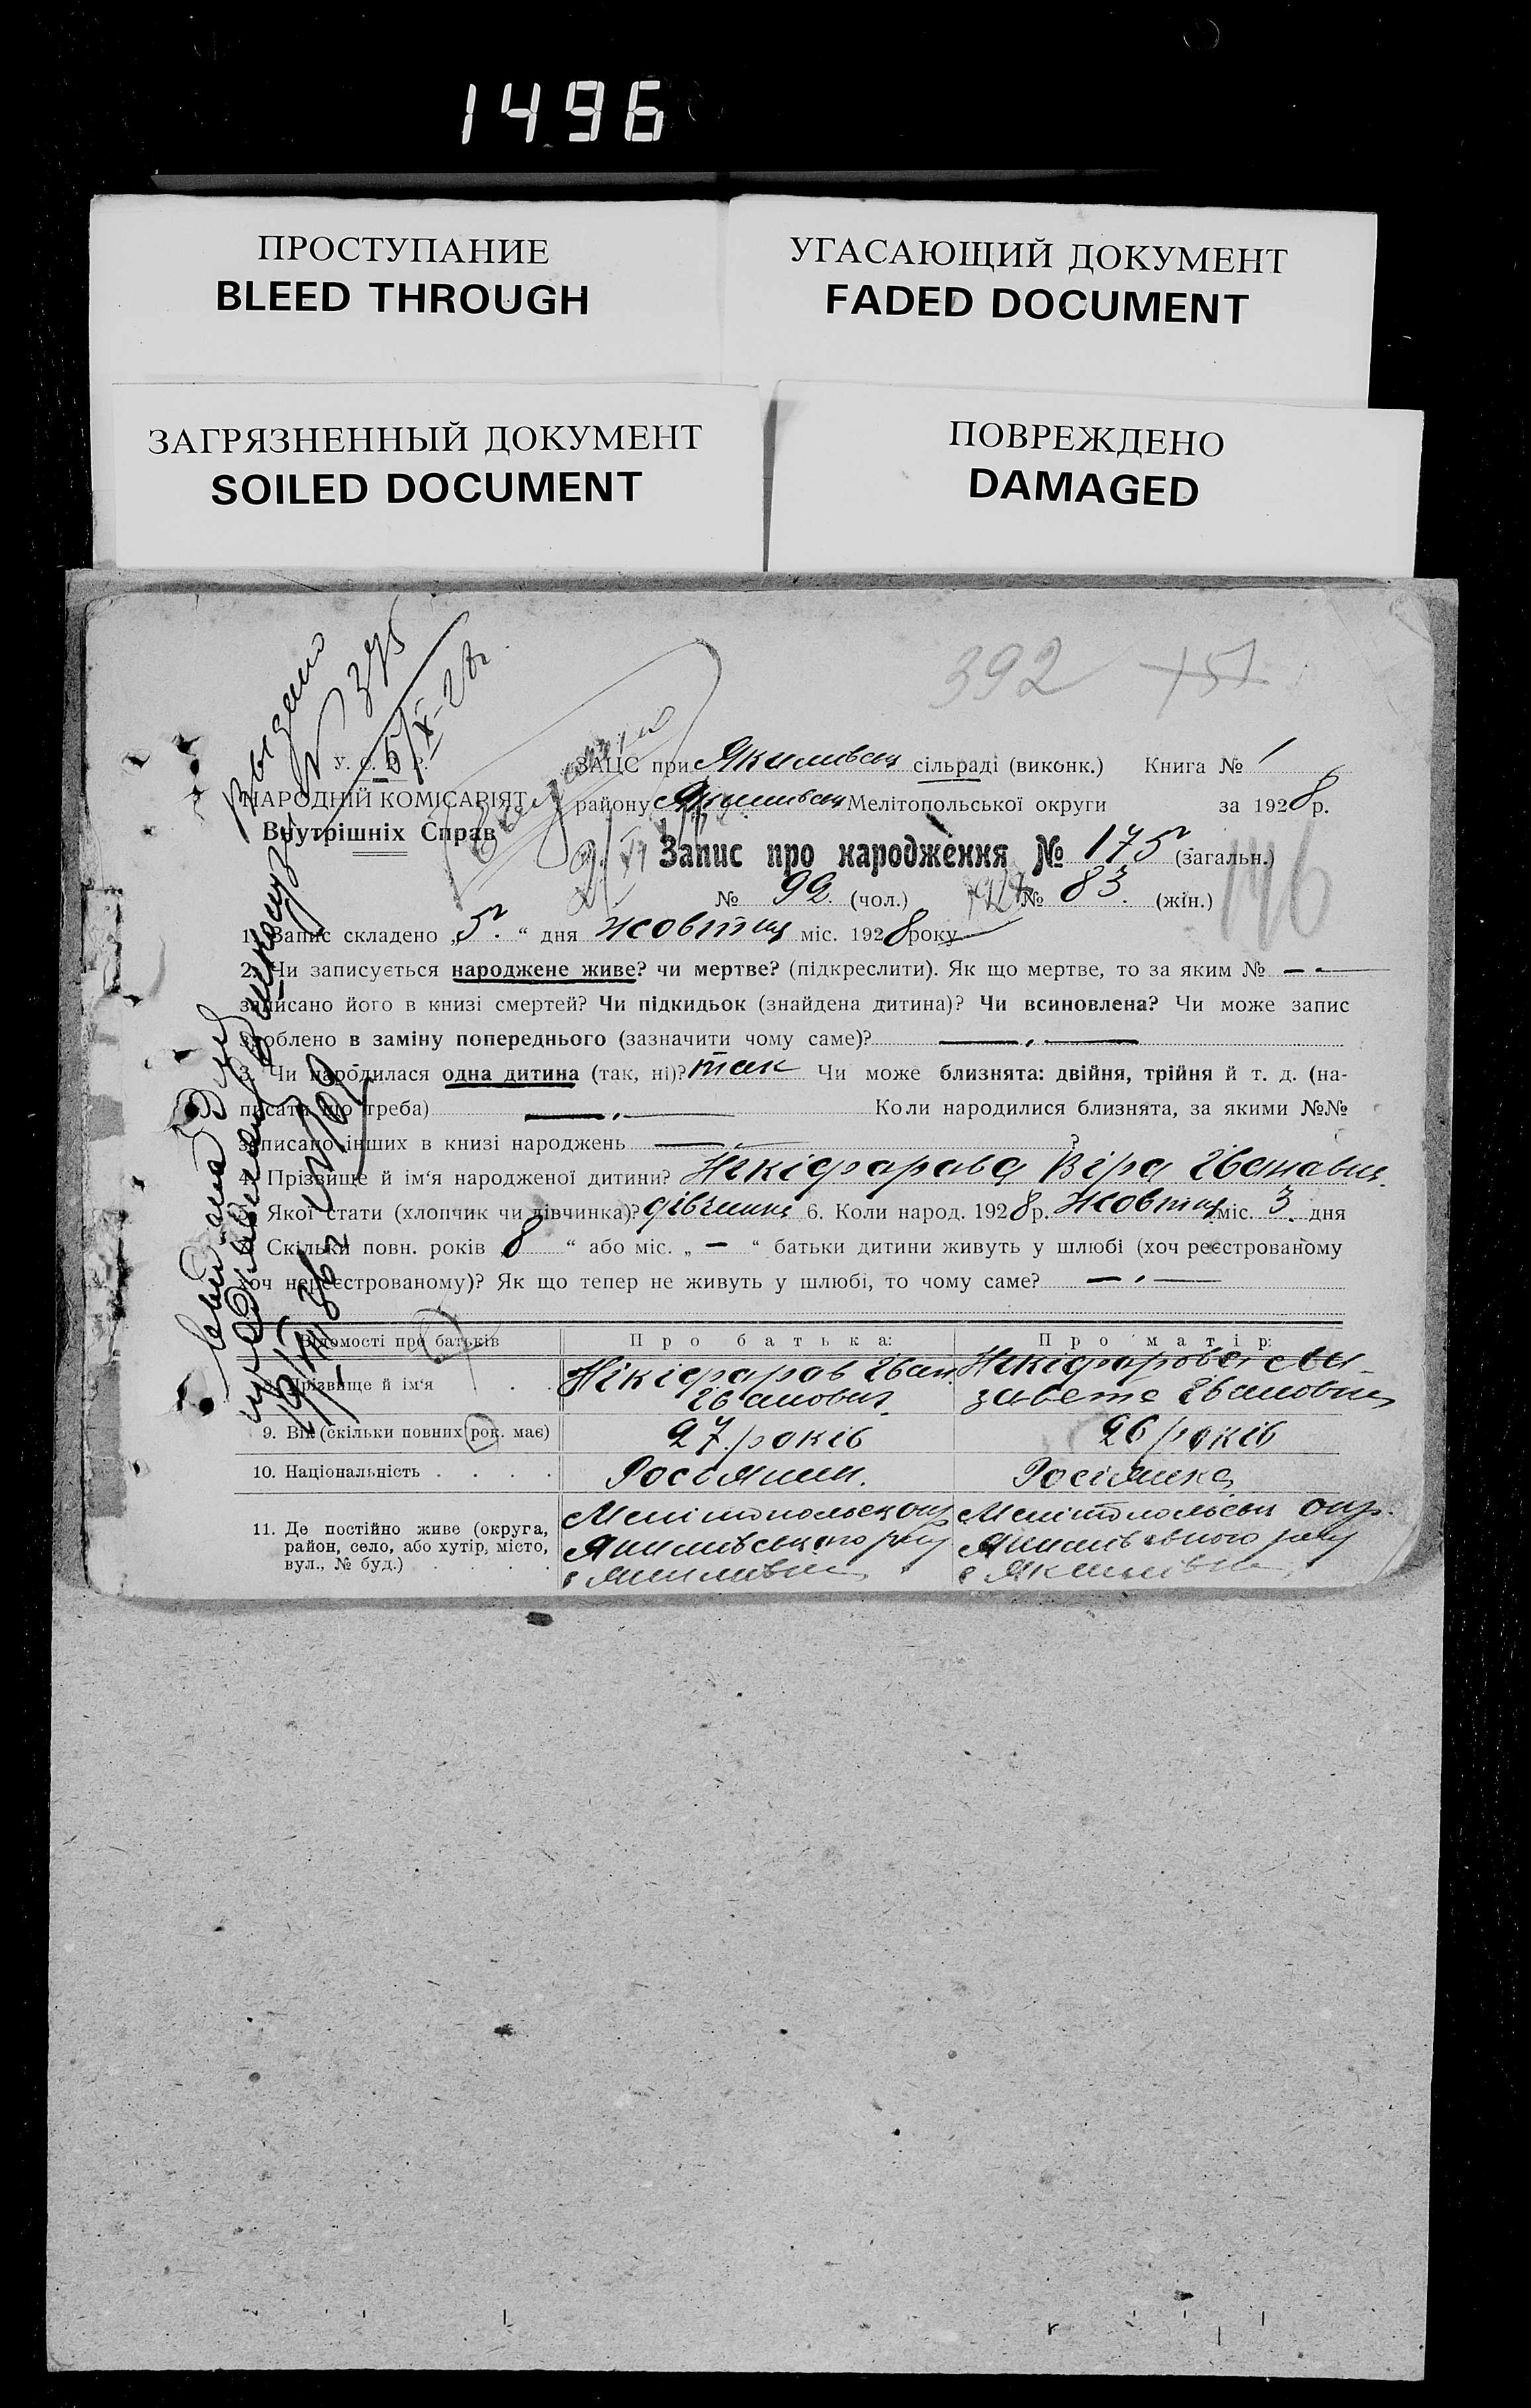 1496
ПРОСТУПАНИЕ
BLEED THROUGH
УГАСАЮЩИЙ ДОКУМЕНТ
FADED DOCUMENT
ЗАГРЯЗНЕННЫЙ ДОКУМЕНТ
SOILED DOCUMENT
ПОВРЕЖДЕНО
DAMAGED
392 151
Выдано
№ 375
5/X-28г.
У. С. Р. Р.
НАРОДНІЙ КОМІСАРІЯТ
Внутрішніх Справ
ЗАЦС при Якимівськ сільраді (виконк.) Книга № 1
району Якимівськ Мелітопольської округи за 1928 р.
Запис про народження № 175 (загальн.)
146
№ 92 (чол.) № 83. (жін.)
1. Запис складено „5.“ дня жовтня міс. 1928 року
2. Чи записується народжене живе? чи мертве? (підкреслити). Як що мертве, то за яким № —
записано його в книзі смертей? Чи підкидьок (знайдена дитина)? Чи всиновлена? Чи може запис
зроблено в заміну попереднього (зазначити чому саме)? —
3. Чи народилася одна дитина (так, ні)? так Чи може близнята: двійня, трійня й т. д. (на-
писати що треба) — Коли народилися близнята, за якими №№
записано інших в книзі народжень — ?
4. Прізвище й ім‘я народженої дитини? Нікіфарава Віра Івановна
5. Якої стати (хлопчик чи дівчинка)? дівчинка 6. Коли народ. 1928 р. жовтня міс. 3 дня
7. Скільки повн. років „8“ або міс. „—“ батьки дитини живуть у шлюбі (хоч реєстрованому
хоч нереєстрованому)? Як що тепер не живуть у шлюбі, то чому саме? —
Відомості про батьків Про батька: Про матір:
8. Прізвище й ім‘я Нікіфарав Іван Нікіфарова Єли-
Іванович завета Івановна
9. Вік (скільки повних рок. має) 27 років 26 років
10. Національність Россіянин. Росіянка
11. Де постійно живе (округа,
район, село, або хутір, місто,
вул., № буд.)
Мелітопольськ окр. Мелітопольськ окр.
Якимівського рай Якимівського рай
с Якимівка с Якимівка